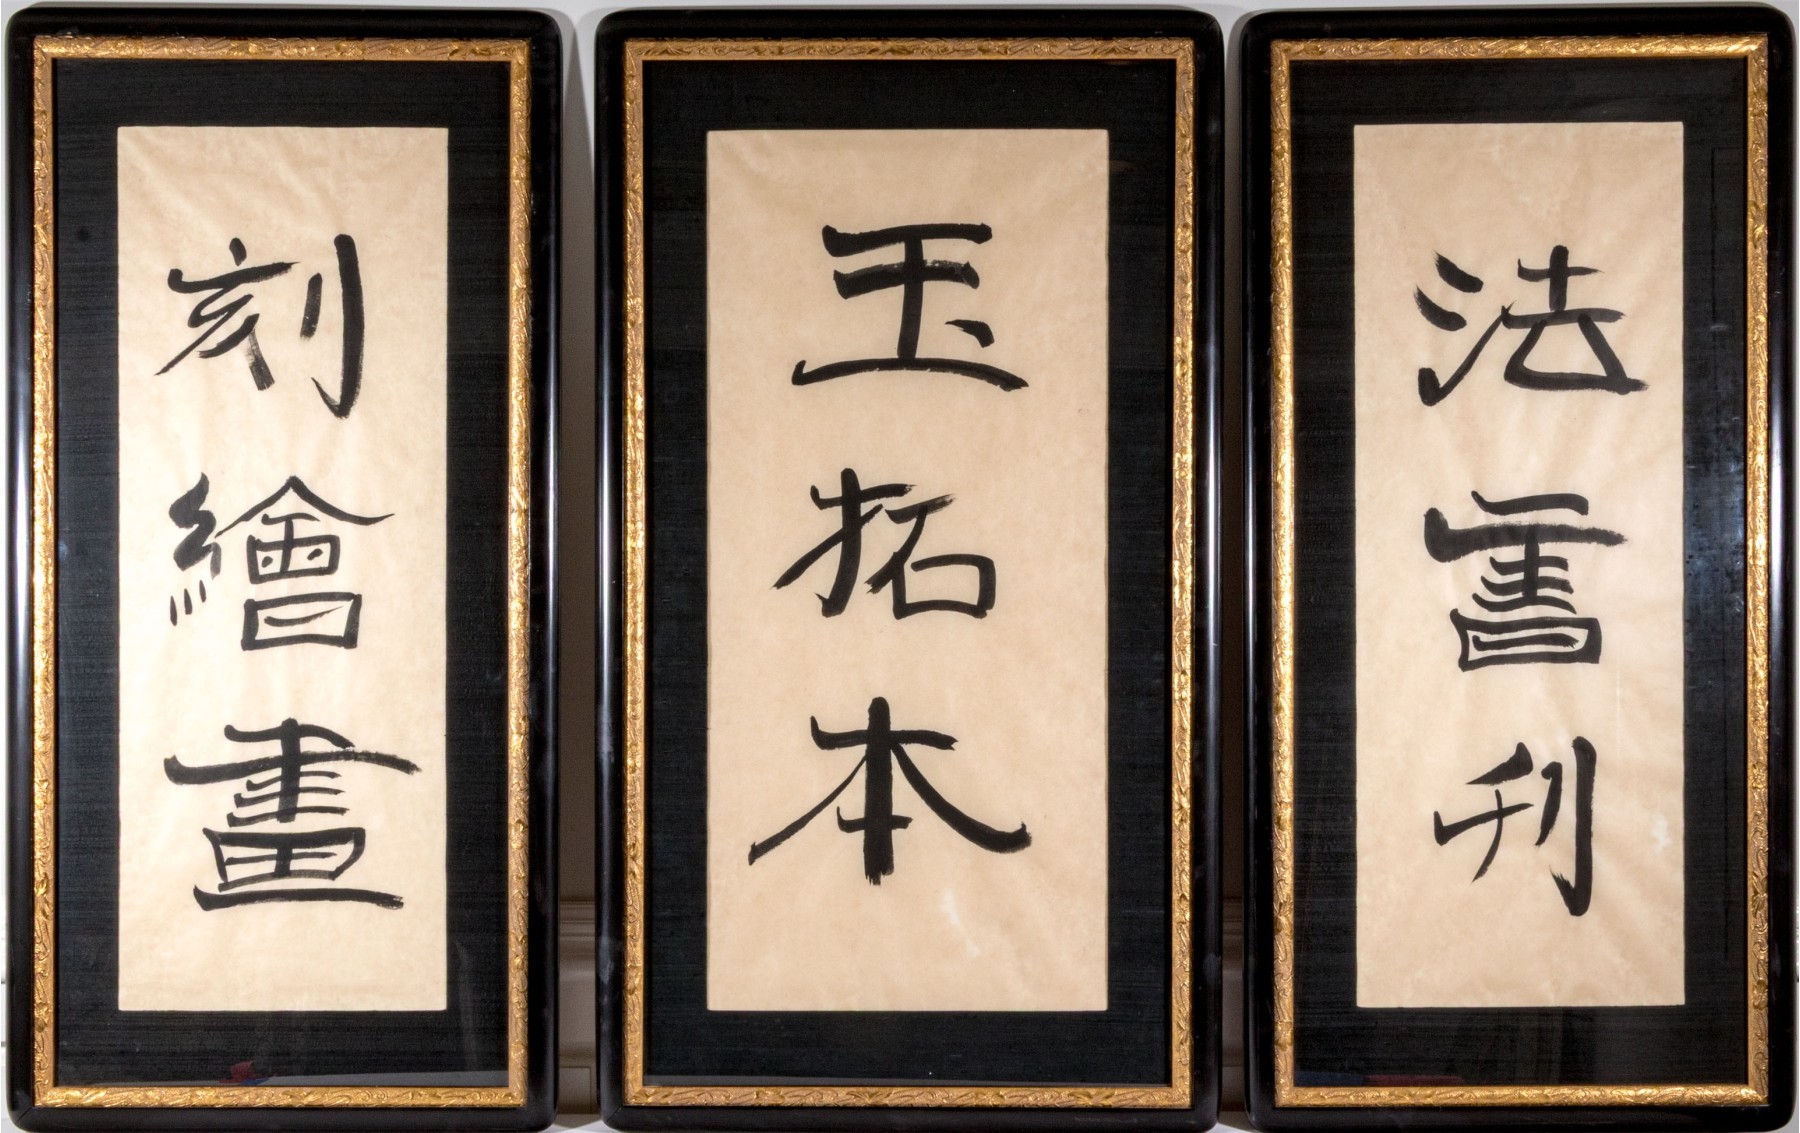 法書刊
玉拓本
刻繪畫